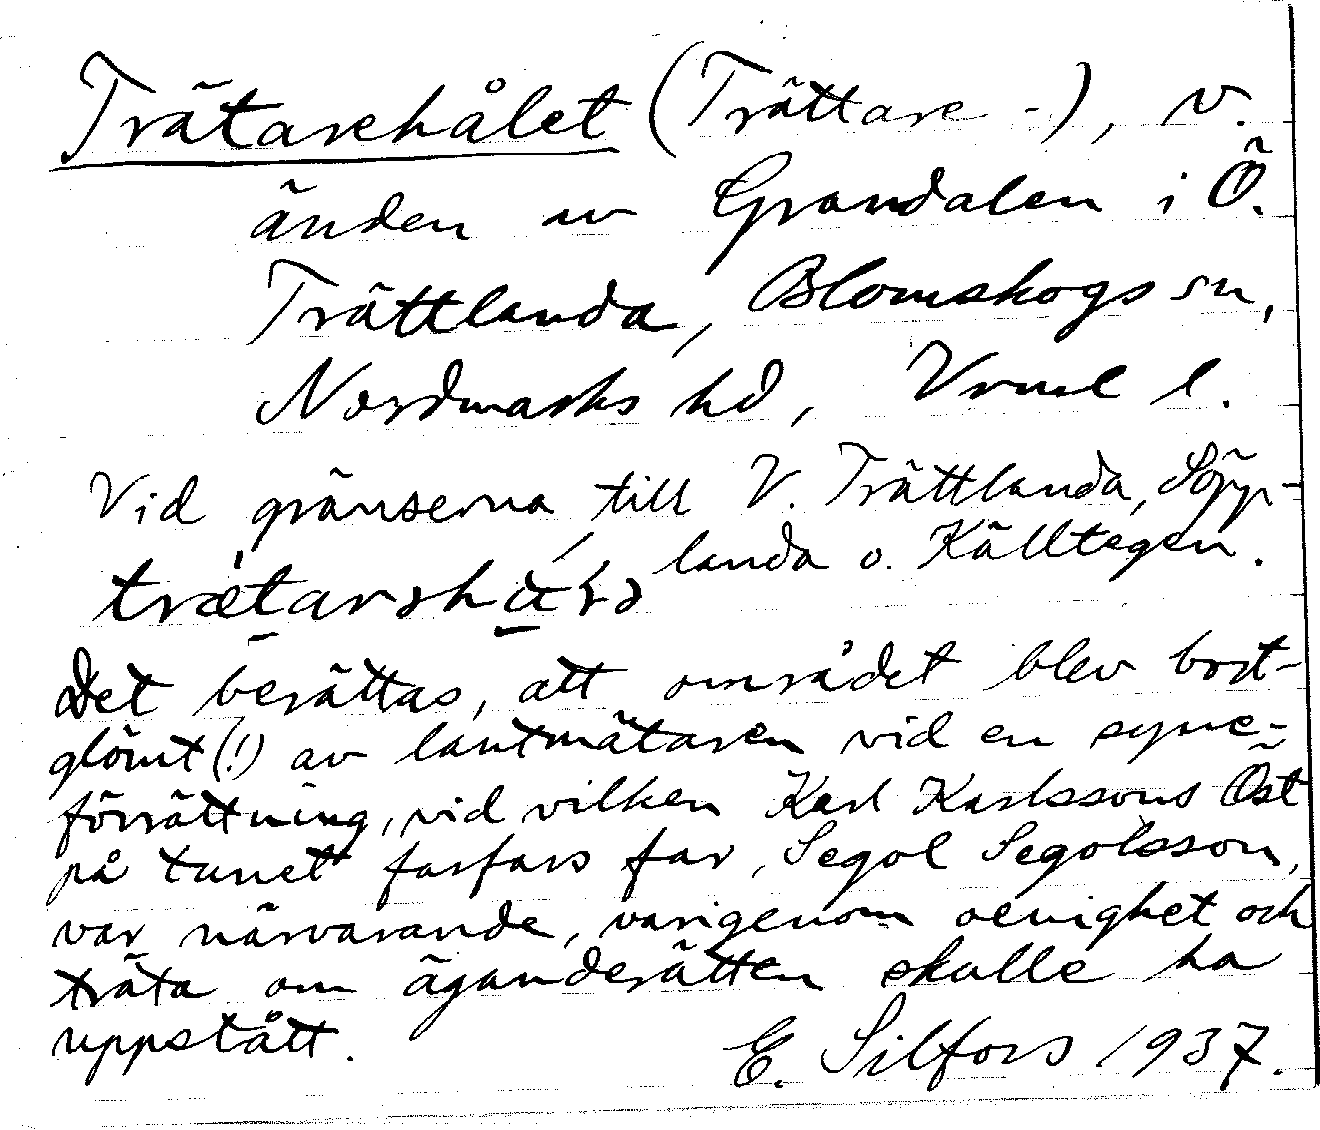 Trätarehålet (Trättare-), v.
änden av Grandalen i Ö.
Trättlanda, Blomskogs sn,
Nordmarks hd, Vrml l.
Vid gränserna till V. Trättlanda, Söpp-
landa o. Källtegen.
Det berättas, att området blev bort-
glömt (!) av lantmätaren vid en syne-
förrättning, vid vilken Karl Karlssons Öst
på tunet farfars far, Segol Segolsson,
var närvarande, varigenom oenighet och
träta om äganderätten skulle ha
uppstått.
E. Silfors 1937.